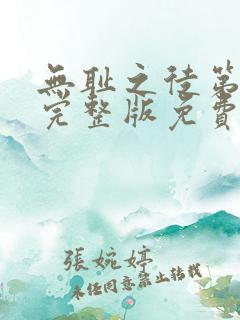 無耻之徒第
完整版免費
張婉婷
未经同意禁止转载